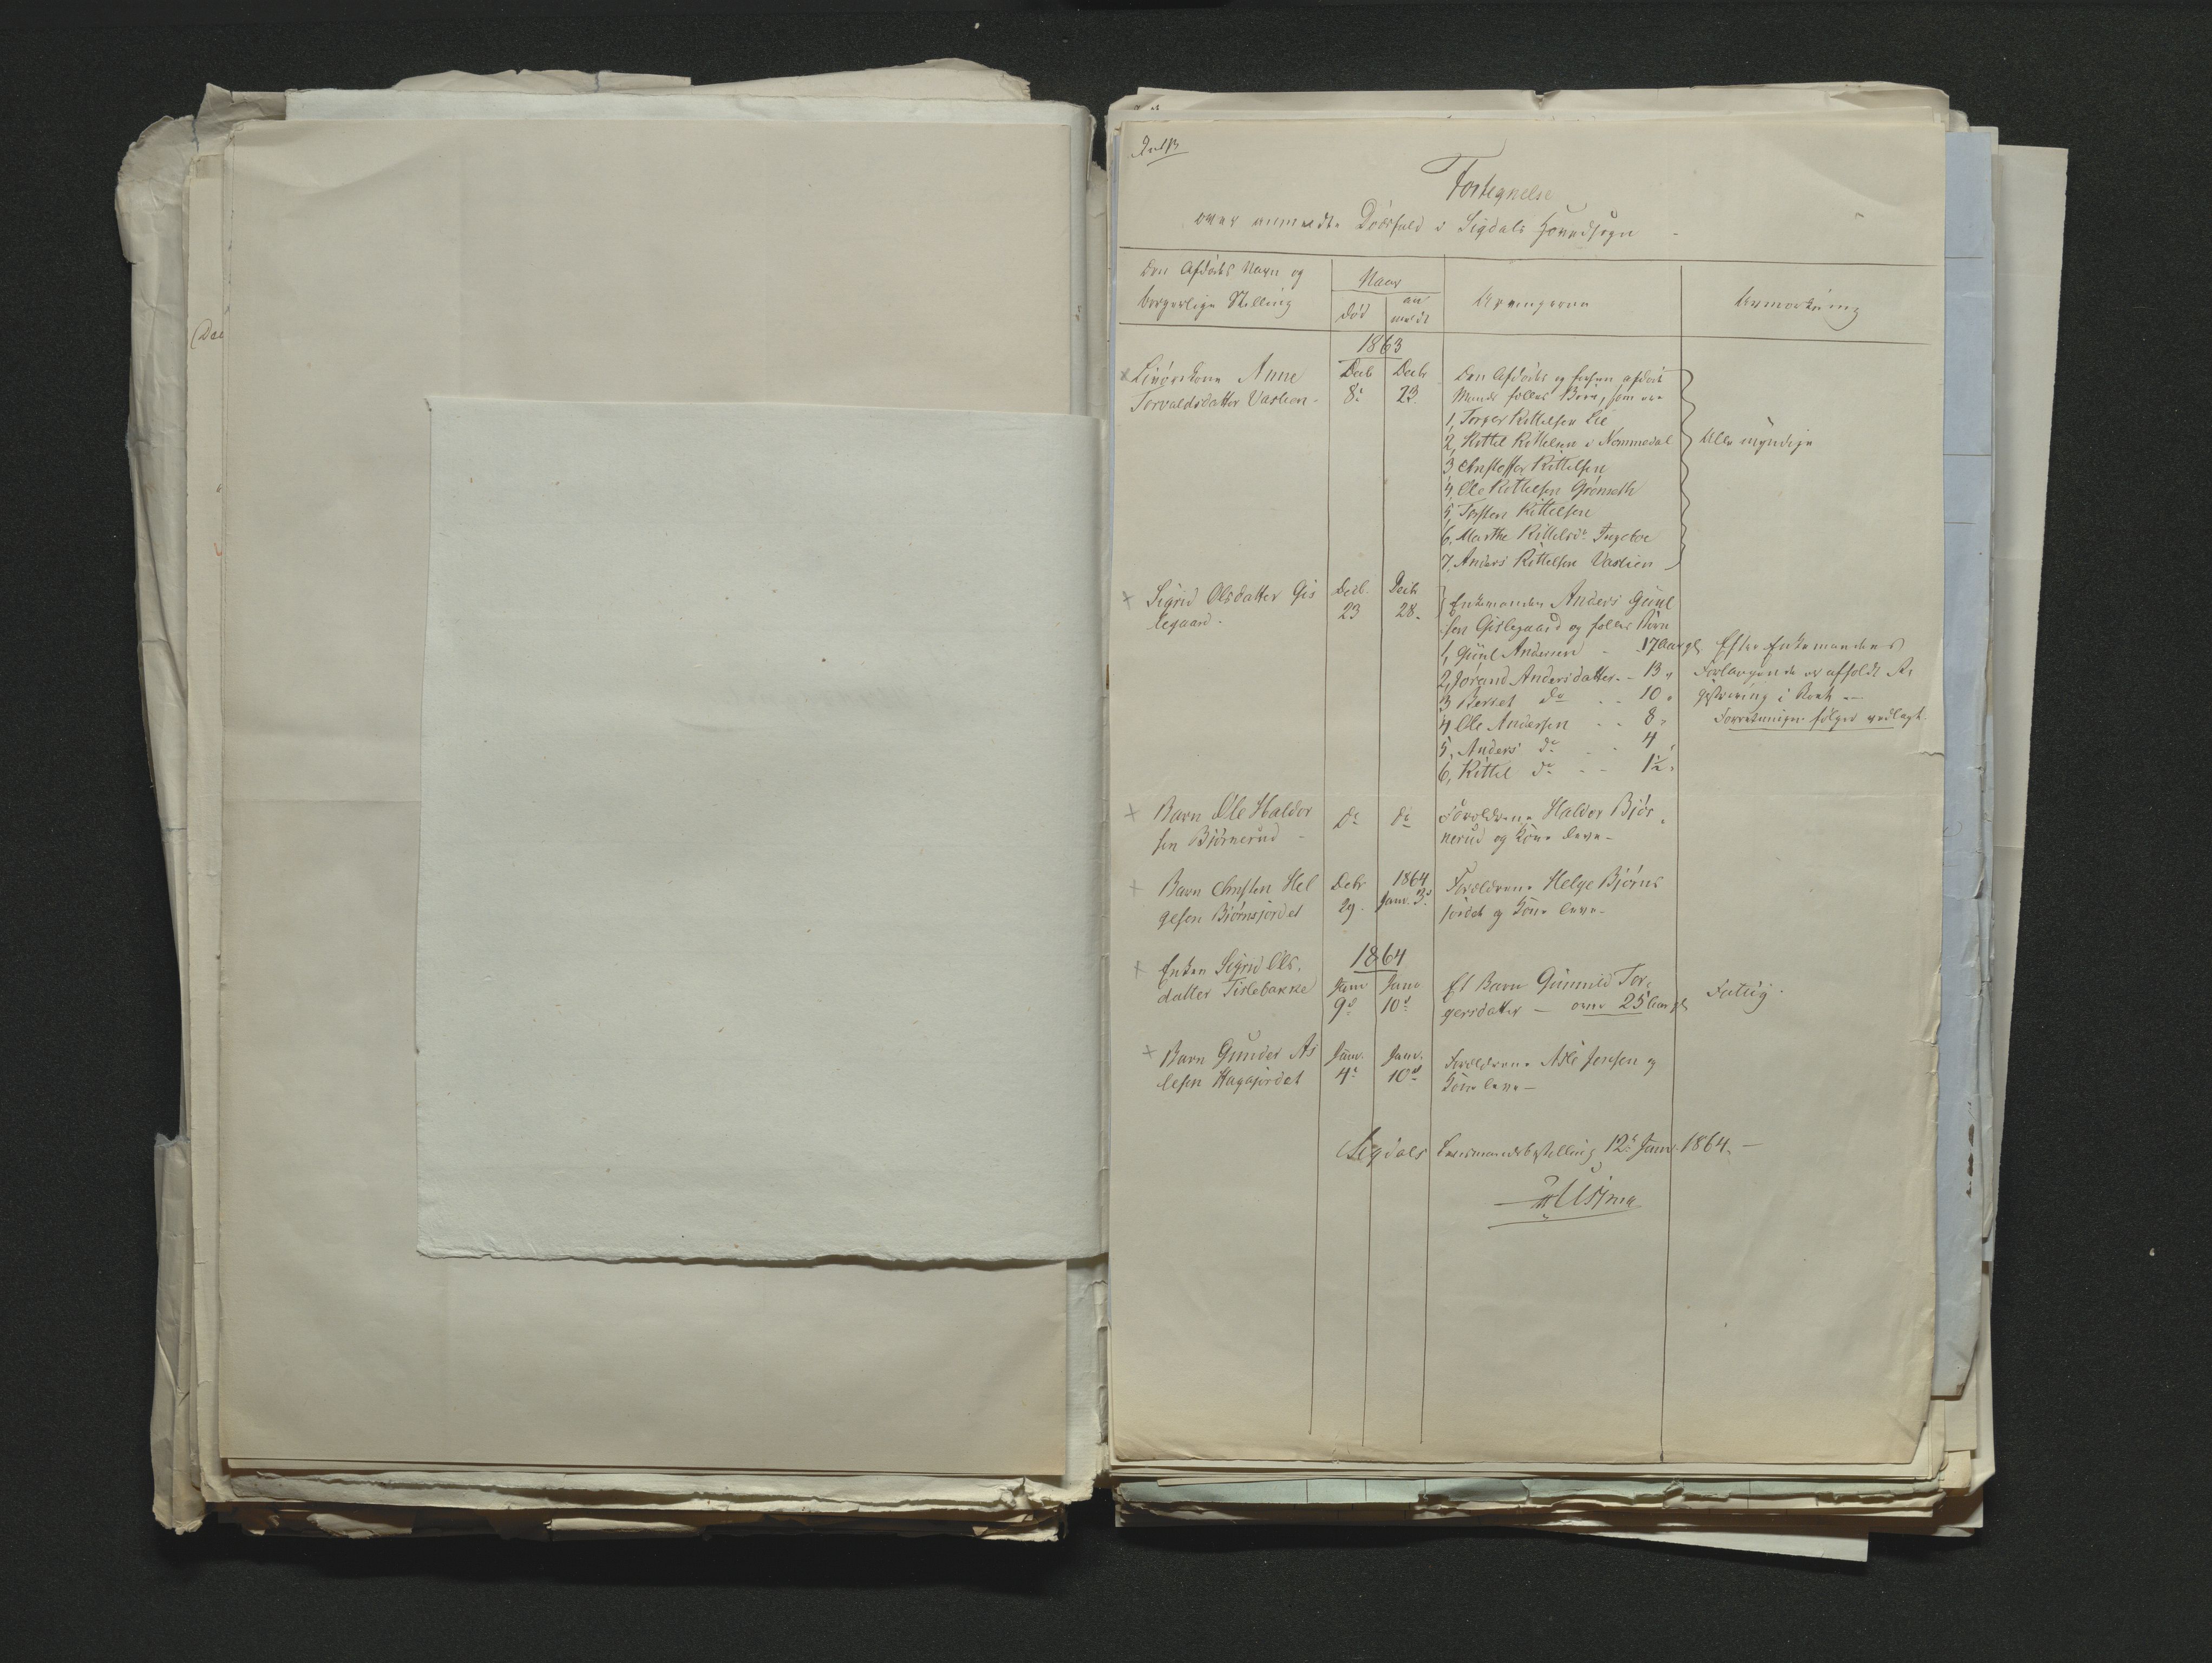 Fortegnelse
over anmeldte Dødsfald i Sigdals Hovedsogn
Den Afdødes Navn og
borgerlige Stilling
Naar
død
an
meldt
Arvingerne
Anmærkning
1863
Anne
Torvaldsdatter Vaslien
Decb
8de
Decbr
23
Den Afdødes og forhen afdøde
Mands fælles Børn, som ere
1, Torger Kittelsen Lie
2, Kittel Kittelsen i Nommedal
3 Christoffer Kittelsen
4, Ole Kittelsen Grønseth
5, Torsten Kittelsen
6, Marthe Kittelsdr
7, Anders Kittelsen Vaslien
Alle myndige
Sigrid Olsdatter Gis
legaard.
Decb.
23
Decbr
28.
Enkemanden Anders Guul
sen Gislegaard og fælles Børn
1, Guul Andersen - 17 Aar gl
2, Jorand Andersdatter - 13 "
3 Berget do - - 10 "
4 Ole Andersen - - 8 "
5, Anders do - - 4 "
6, Kittel do - - 1½ "
Efter Enkemandens
Forlangende er afholdt Re
gistrering i Boet —
Forretningen følger vedlagt.
Barn Ole Haldor
sen Bjørnerud -
do
do
Forældrene Haldor Bjør
nerud og Kone leve -
Barn Christen Hel
gesen Bjørnsjordet
Debr
29.
1864
Janr. 3de
Forældrene Helge Bjørns
jordet og Kone leve -
Enken Sigrid Ols
datter Tislebakke
1864
Janr
9de
Janr
10de
Et Barn Gunnild Tor
gersdatter — over 25 Aar gl
Fattig.
Barn Gunder As
lesen Hagajordet
Janr.
4de
Janr.
10de
Forældrene Asle Jensen og
Kone leve —
Sigdals Lensmandsbestilling 12te Janr. 1864. —